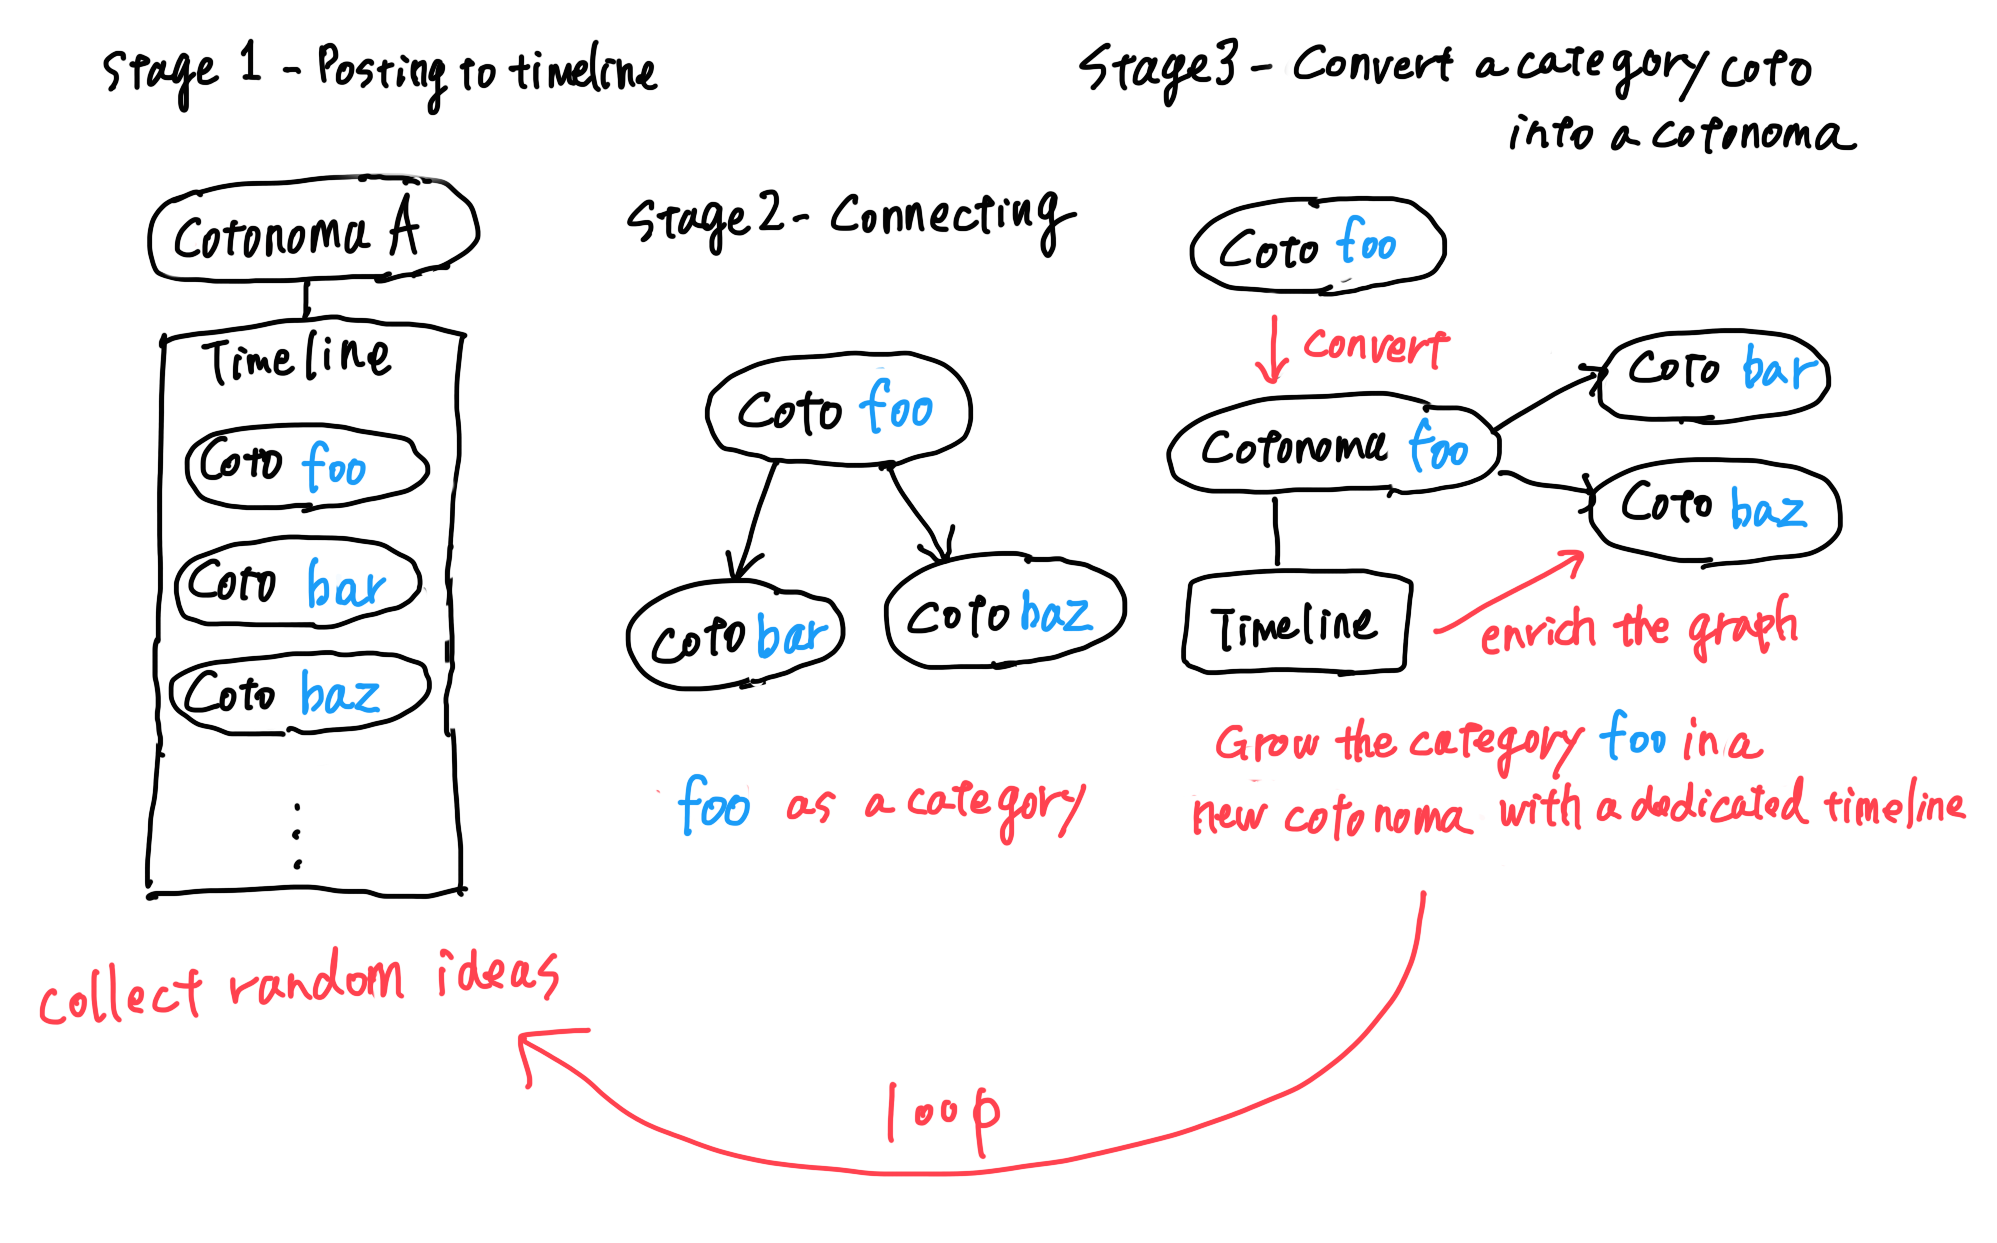 Stage 1 - Posting to timeline
Cotonoma A
Timeline
Coto foo
Coto bar
Coto baz
collect random ideas
Stage2 - Connecting
Coto foo
Coto bar
Coto baz
foo as a category
Stage3 - Convert a category coto
into a cotonoma
Coto foo
convert
Cotonoma foo
Coto bar
Coto baz
Timeline
enrich the graph
Grow the category foo in a
new cotonoma with a dedicated timeline
loop